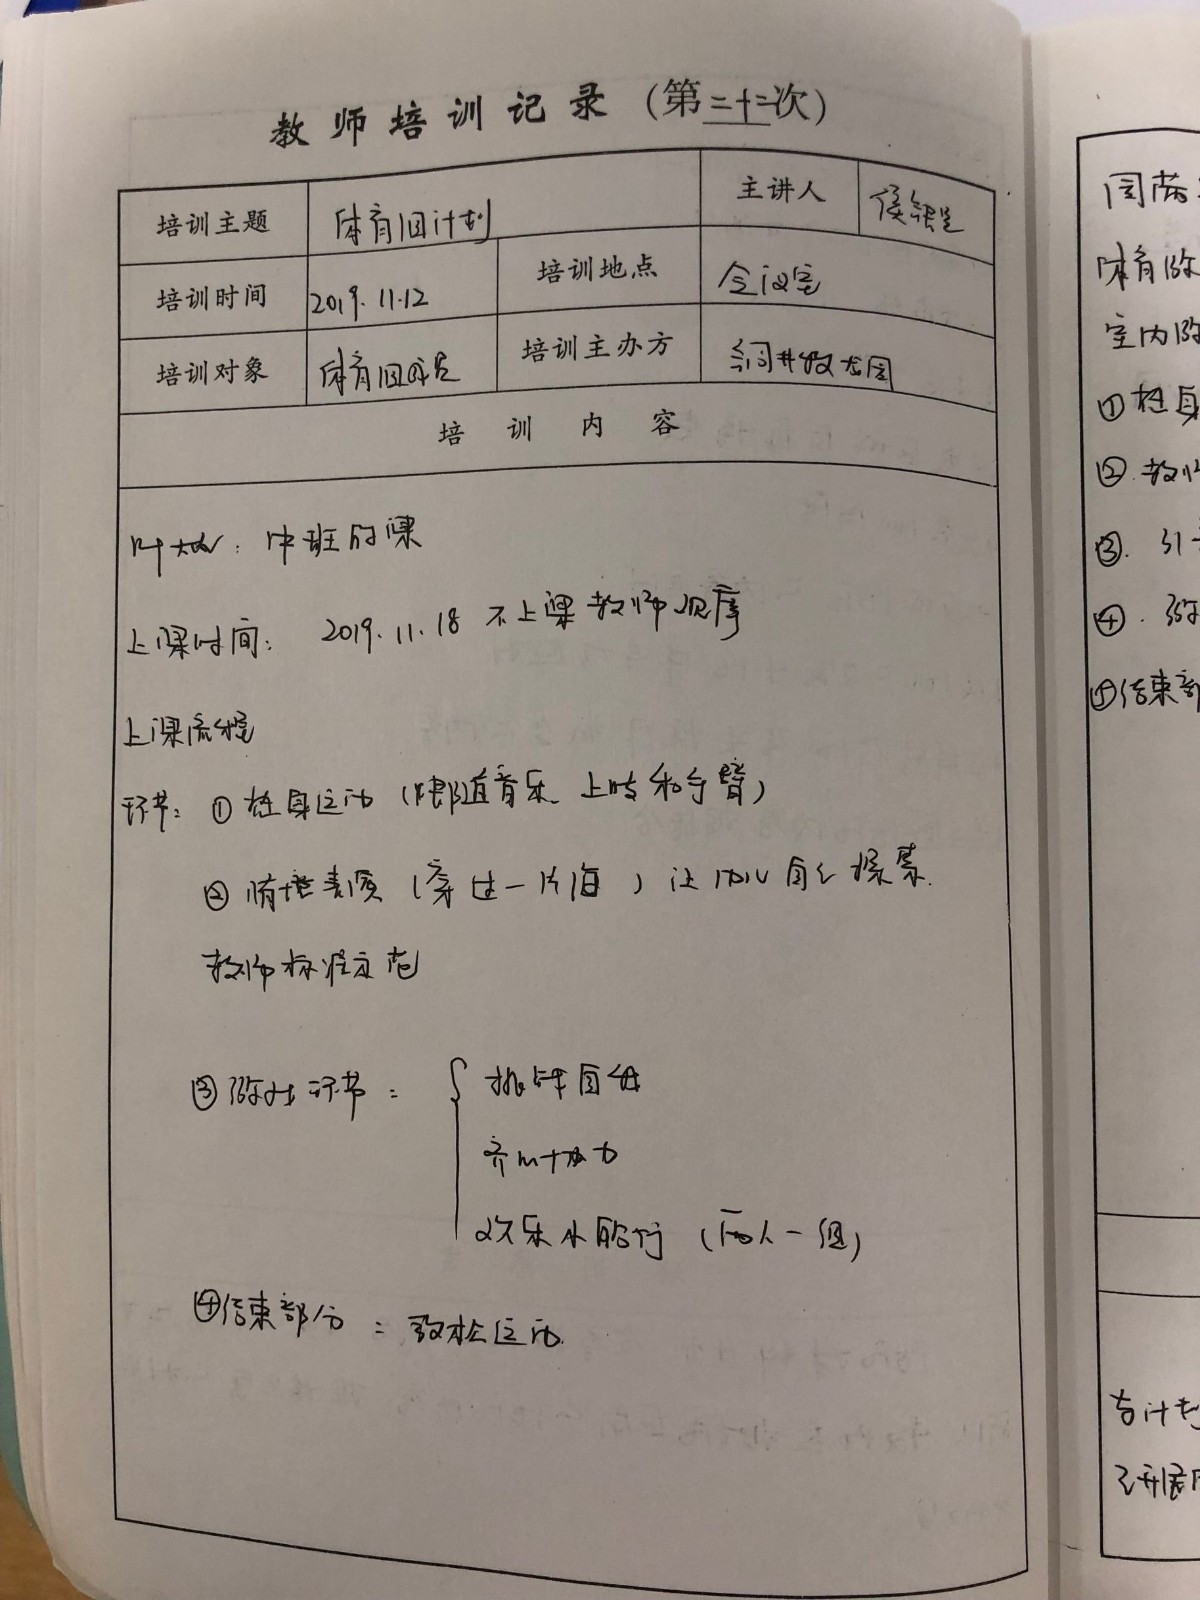 教师培训记录（第二十二次）
培训主题 体育园计划 主讲人 侯银
培训时间 2019.11.12 培训地点 会议室
培训对象 体育园成员 培训主办方
培训内容
叶 : 中班的课
上课时间: 2019.11.18 不上课教师观摩
上课流程
环节: ① 热身运动 (跟随音乐 上肢和手臂)
② 素质 (穿过一片海) 让幼儿自己探索.
教师标准示范
③ 游戏环节: { 挑战自我
齐心协力
欢乐小船行 (两人一组)
④ 结束部分: 放松运动.
体育游
室内游
① 热身
② 教师
③. 引
④. 游
⑤ 结束部